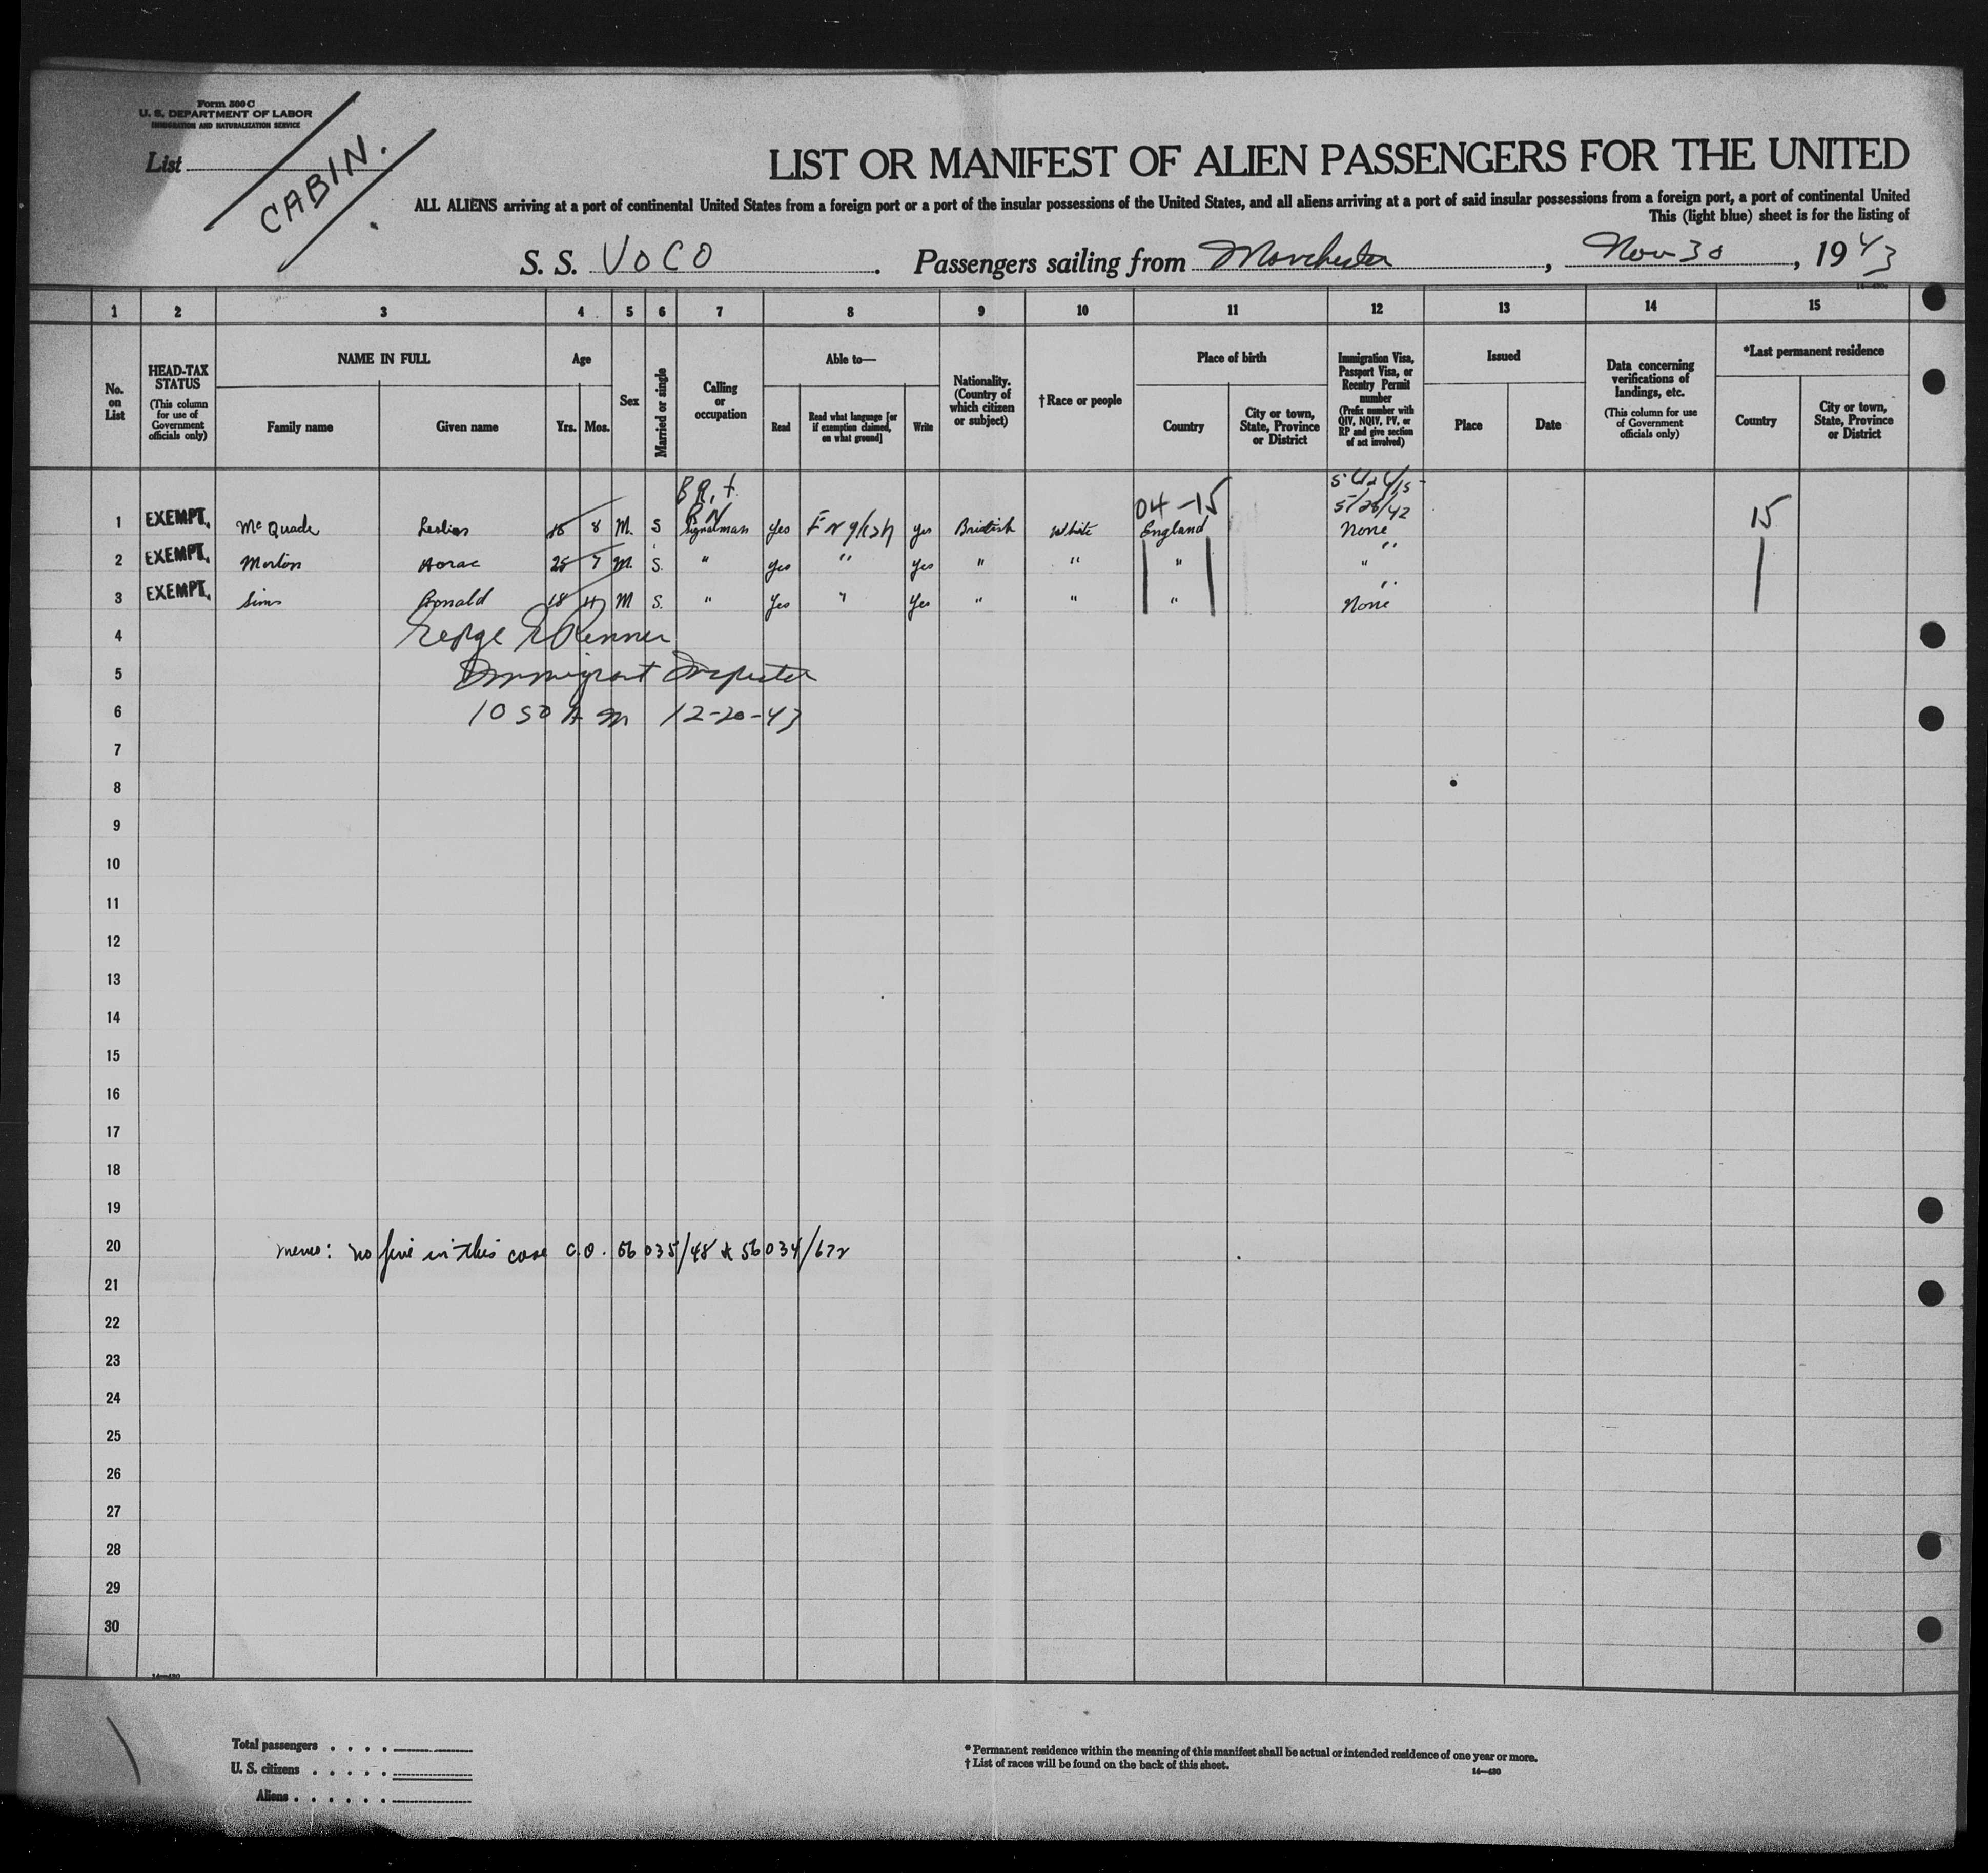 Form 500 C
U. S. DEPARTMENT OF LABOR
IMMIGRATION AND NATURALIZATION SERVICE
List
CABIN.
LIST OR MANIFEST OF ALIEN PASSENGERS FOR THE UNITED
ALL ALIENS arriving at a port of continental United States from a foreign port or a port of the insular possessions of the United States, and all aliens arriving at a port of said insular possessions from a foreign port, a port of continental United
This (light blue) sheet is for the listing of
S. S. VOCO. Passengers sailing from Manchester, Nov 30, 1943
1 2 3 4 5 6 7 8 9 10 11 12 13 14 15
No. on List
HEAD-TAX STATUS (This column for use of Government officials only)
NAME IN FULL
Family name
Given name
Age
Yrs. Mos.
Sex
Married or single
Calling or occupation
Able to—
Read
Read what language [or if exemption claimed, on what ground]
Write
Nationality. (Country of which citizen or subject)
† Race or people
Place of birth
Country
City or town, State, Province or District
Immigration Visa, Passport Visa, or Reentry Permit number (Prefix number with QIV, NQIV, PV, or RP and give section of act involved)
Issued
Place
Date
Data concerning verifications of landings, etc. (This column for use of Government officials only)
*Last permanent residence
Country
City or town, State, Province or District
BR. +
R N
04-15
5/25/42
15
1 EXEMPT. McQuade Leslie 18 8 M. S Signalman Yes English Yes British White England None
2 EXEMPT. Morton Horac 25 7 M. S. " Yes " Yes " " " "
3 EXEMPT. Sims Ronald 18 4 M S. " Yes " Yes " " " None
4 George Renner
5 Immigrant Inspector
6 10 50 A M 12-20-43
7
8
9
10
11
12
13
14
15
16
17
18
19
20 memo: no fine in this case C.O. 56035/48 & 56034/672
21
22
23
24
25
26
27
28
29
30
14—430
Total passengers . . . .
U. S. citizens . . . . .
Aliens . . . . . .
* Permanent residence within the meaning of this manifest shall be actual or intended residence of one year or more.
† List of races will be found on the back of this sheet.
14—430